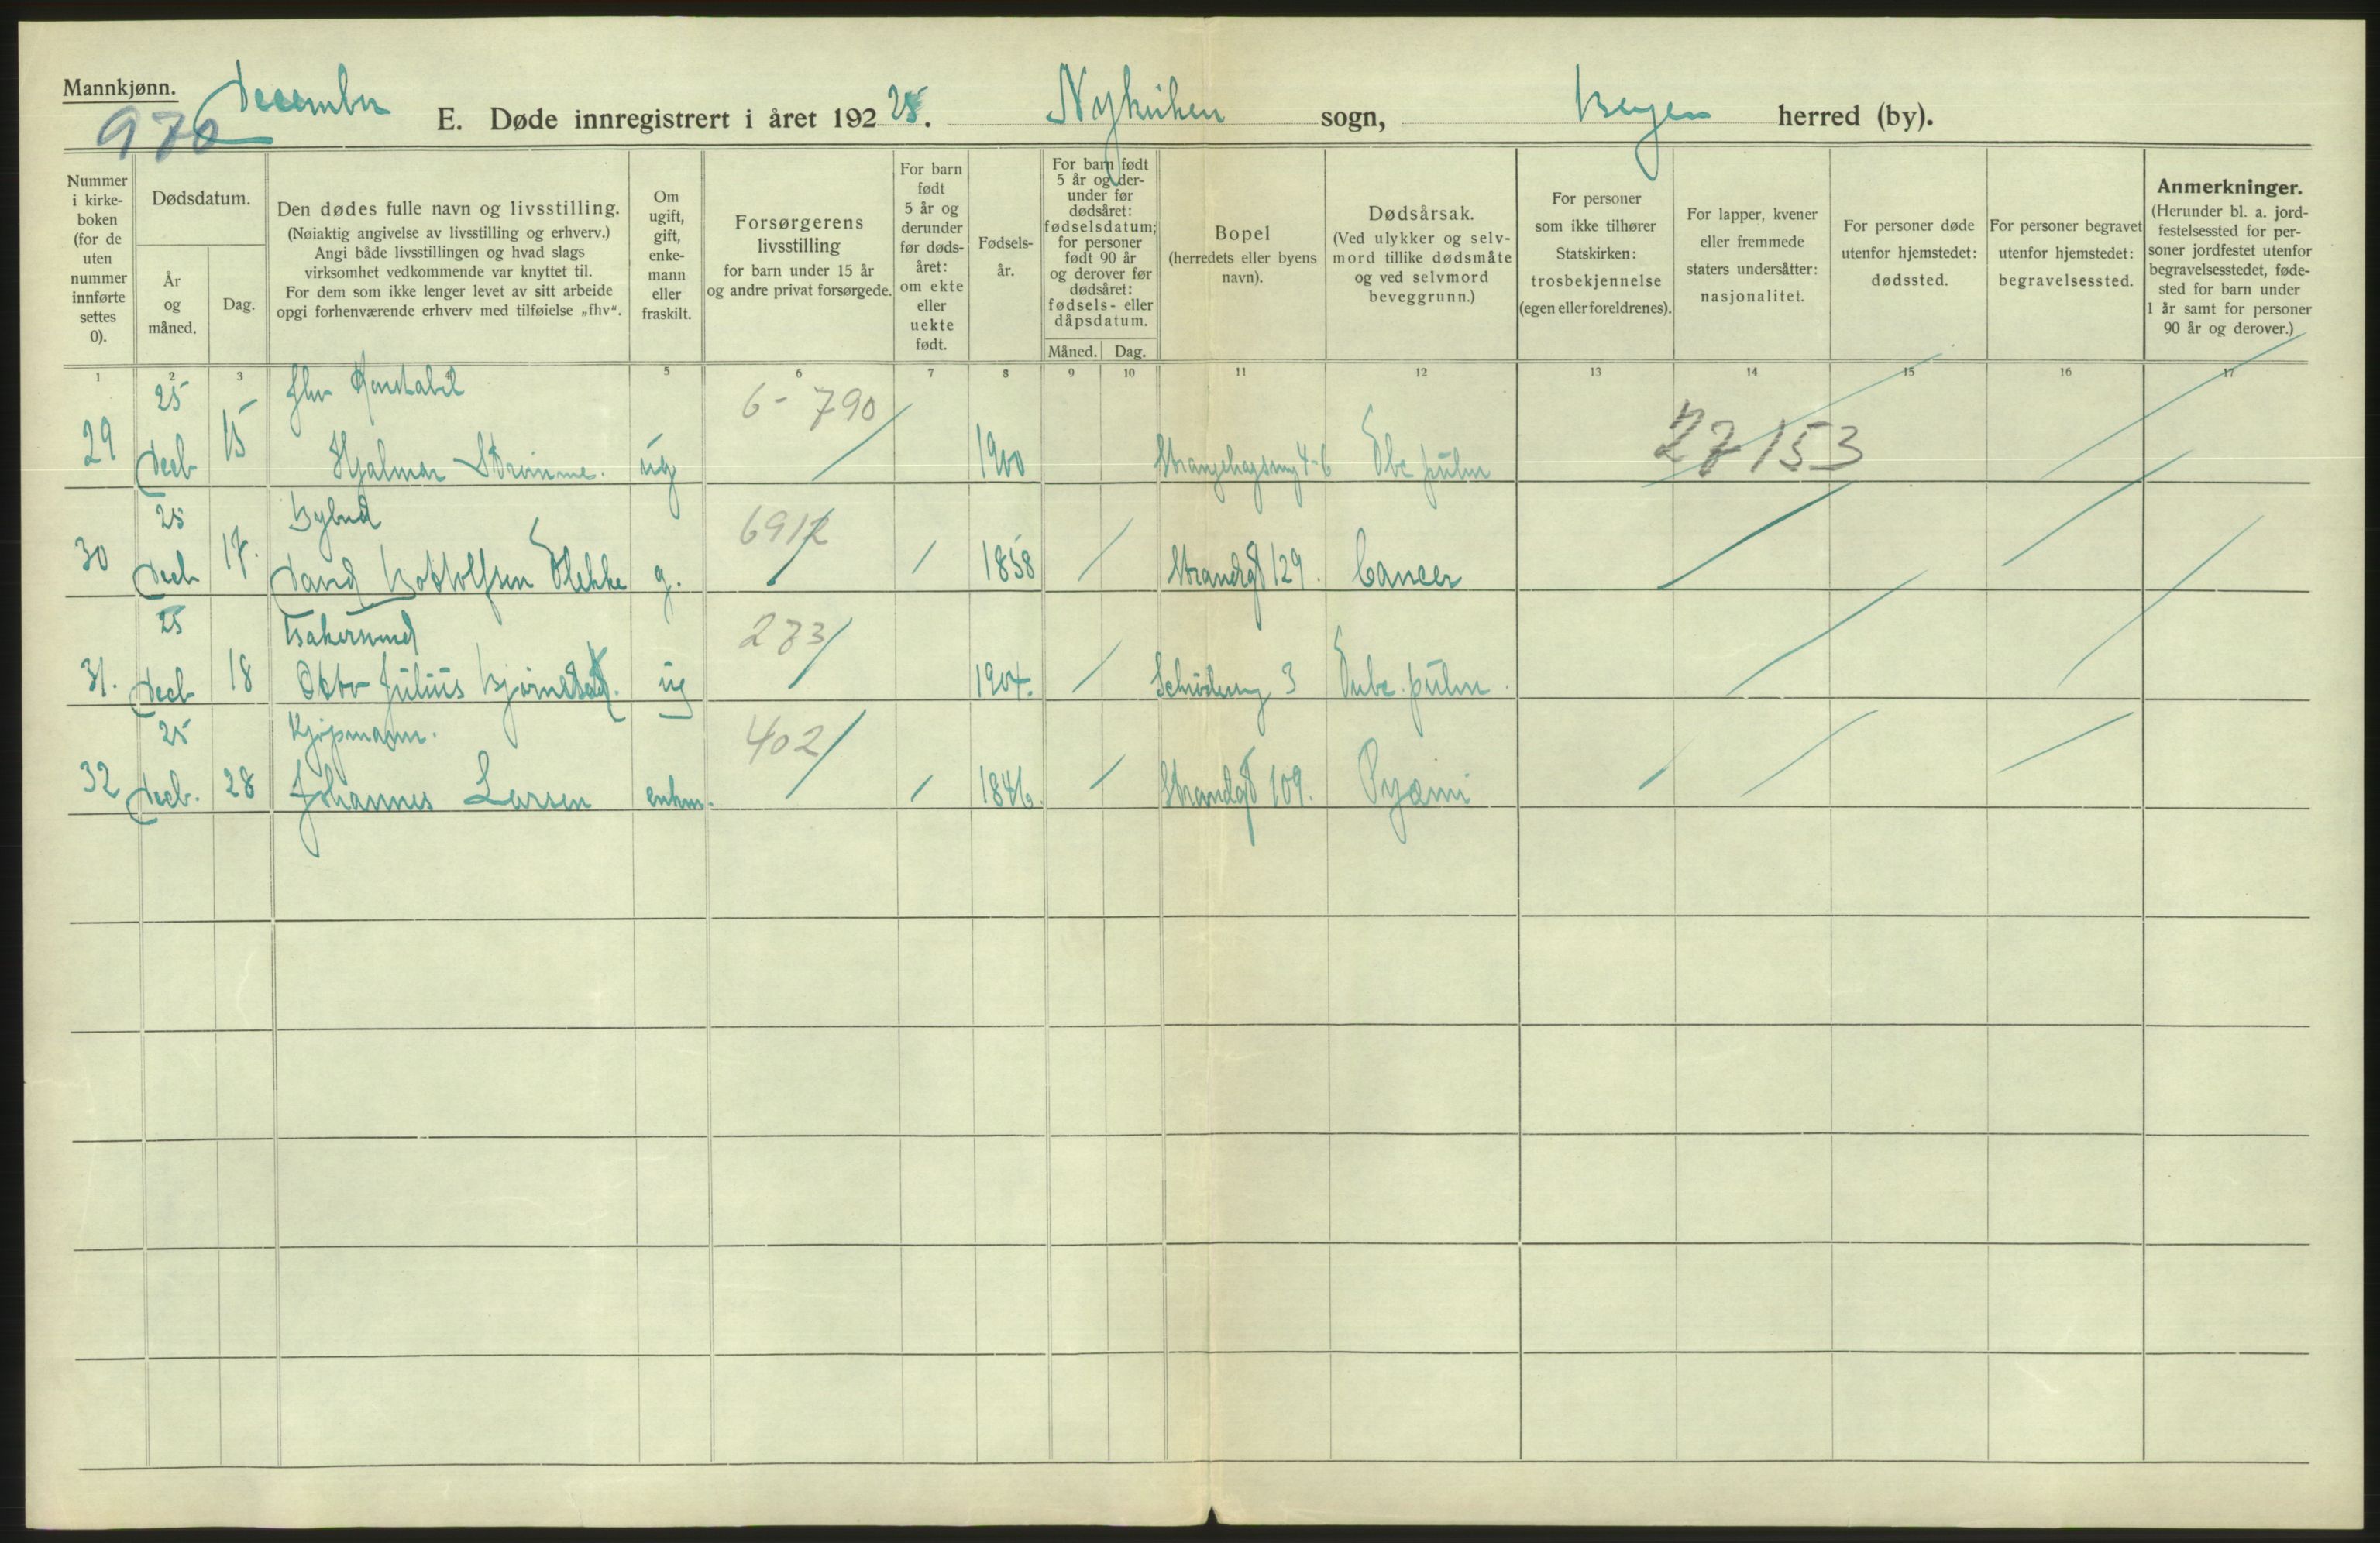 Mannkjønn.
970
December
E. Døde innregistrert i året 192 25. Nykirken sogn, Bergen herred (by).
Nummer i kirke- boken (for de uten nummer innførte settes 0).
Dødsdatum.
År og måned.
Dag.
Den dødes fulle navn og livsstilling.
(Nøiaktig angivelse av livsstilling og erhverv.)
Angi både livsstillingen og hvad slags
virksomhet vedkommende var knyttet til.
For dem som ikke lenger levet av sitt arbeide
opgi forhenværende erhverv med tilføielse „fhv“.
Om ugift, gift, enke- mann eller fraskilt.
Forsørgerens
livsstilling
for barn under 15 år
og andre privat forsørgede.
For barn født 5 år og derunder før døds- året: om ekte eller uekte født.
Fødsels- år.
For barn født 5 år og der- under før dødsåret: fødselsdatum; for personer født 90 år og derover før dødsåret: fødsels- eller dåpsdatum.
Måned. Dag.
Bopel
(herredets eller byens
navn).
Dødsårsak.
(Ved ulykker og selv-
mord tillike dødsmåte
og ved selvmord
beveggrunn.)
For personer
som ikke tilhører
Statskirken:
trosbekjennelse
(egen eller foreldrenes).
For lapper, kvener
eller fremmede
staters undersåtter:
nasjonalitet.
For personer døde
utenfor hjemstedet:
dødssted.
For personer begravet
utenfor hjemstedet:
begravelsessted.
Anmerkninger.
(Herunder bl. a. jord-
festelsessted for per-
soner jordfestet utenfor
begravelsesstedet, føde-
sted for barn under
1 år samt for personer
90 år og derover.)
1 2 3 4 5 6 7 8 9 10 11 12 13 14 15 16 17
25 fhv Konstabel 6-790
29 Decb 15 Hjalmar Strømme. ug 1900 4-6 Tbc pulm 27153
25 Bybud 6912
30 Decb 17. David Bottolfsen Flekke g. 1858 Strandgt 129. Cancer
25 Bakersvend 273
31. Decb 18 Otto Julius Bjørnestad. ug 1904. 3 Tube. pulm.
25 Kjøpmann. 402
32 Decb. 28 Johannes Larsen enkm. 1846. Strandgt 109. Pyæmi